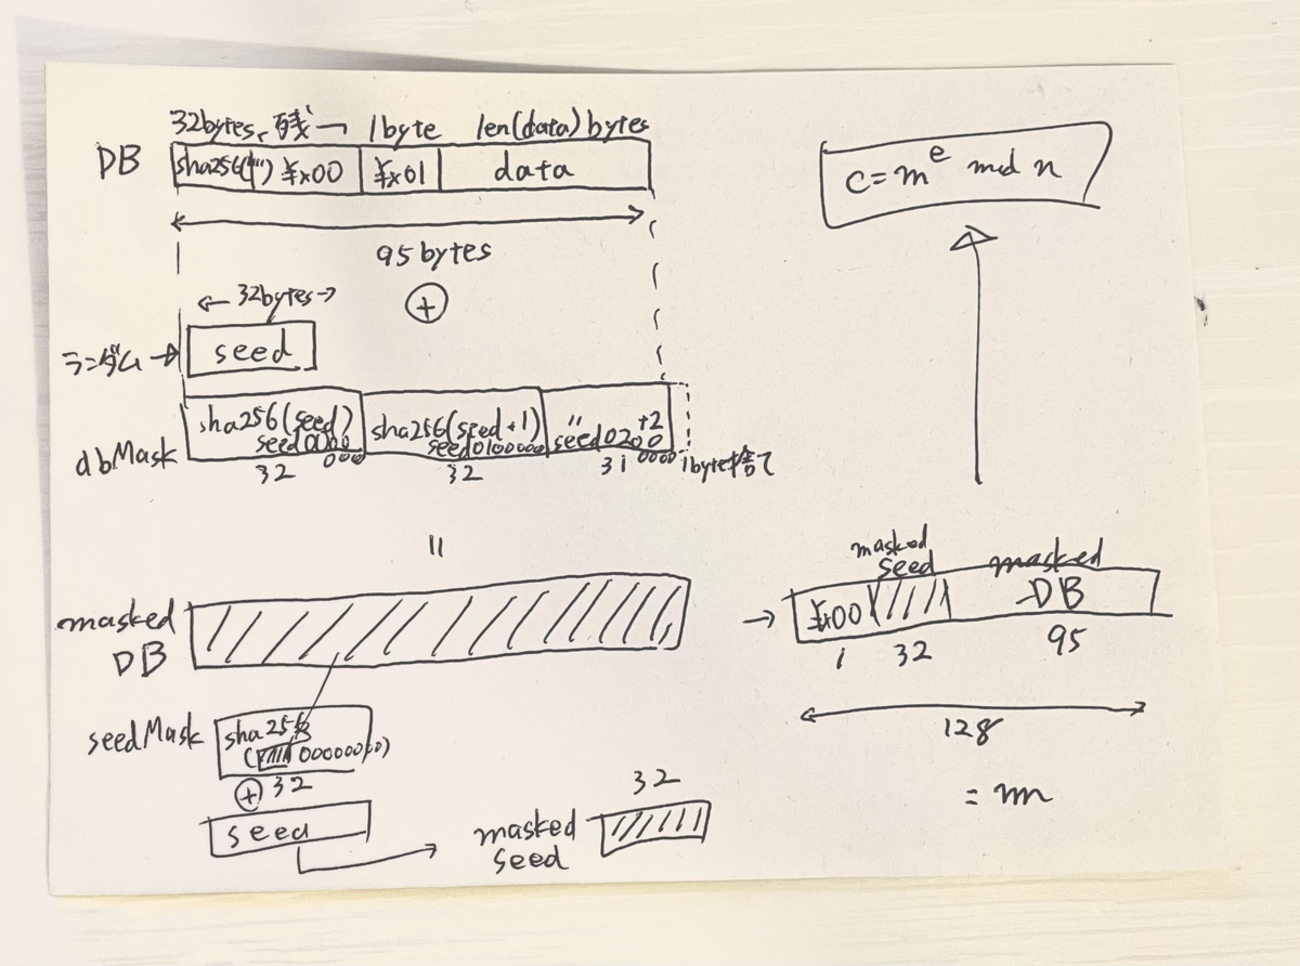 32bytes、残り 1byte len(data)bytes
DB sha256("") ¥x00 ¥x01 data
95bytes
← 32bytes →
⊕
ランダム → seed
dbMask
sha256(seed)
seed00000000
32
sha256(seed+1)
seed01000000
32
〃 +2
seed02000000
31
1byte捨て
=
masked
DB
seedMask
sha256
(00000000)
⊕ 32
seed
masked
seed
32
→ ¥x00 masked
seed
masked
DB
1 32 95
128
= m
c = m^e mod n